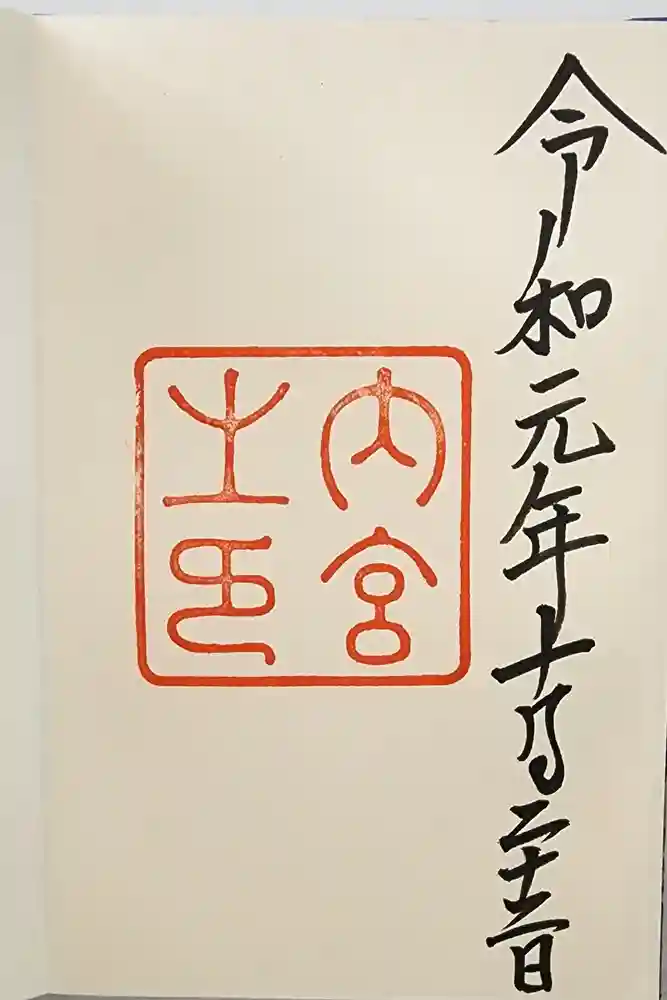 令和元年十月二十二日
内宮
之印